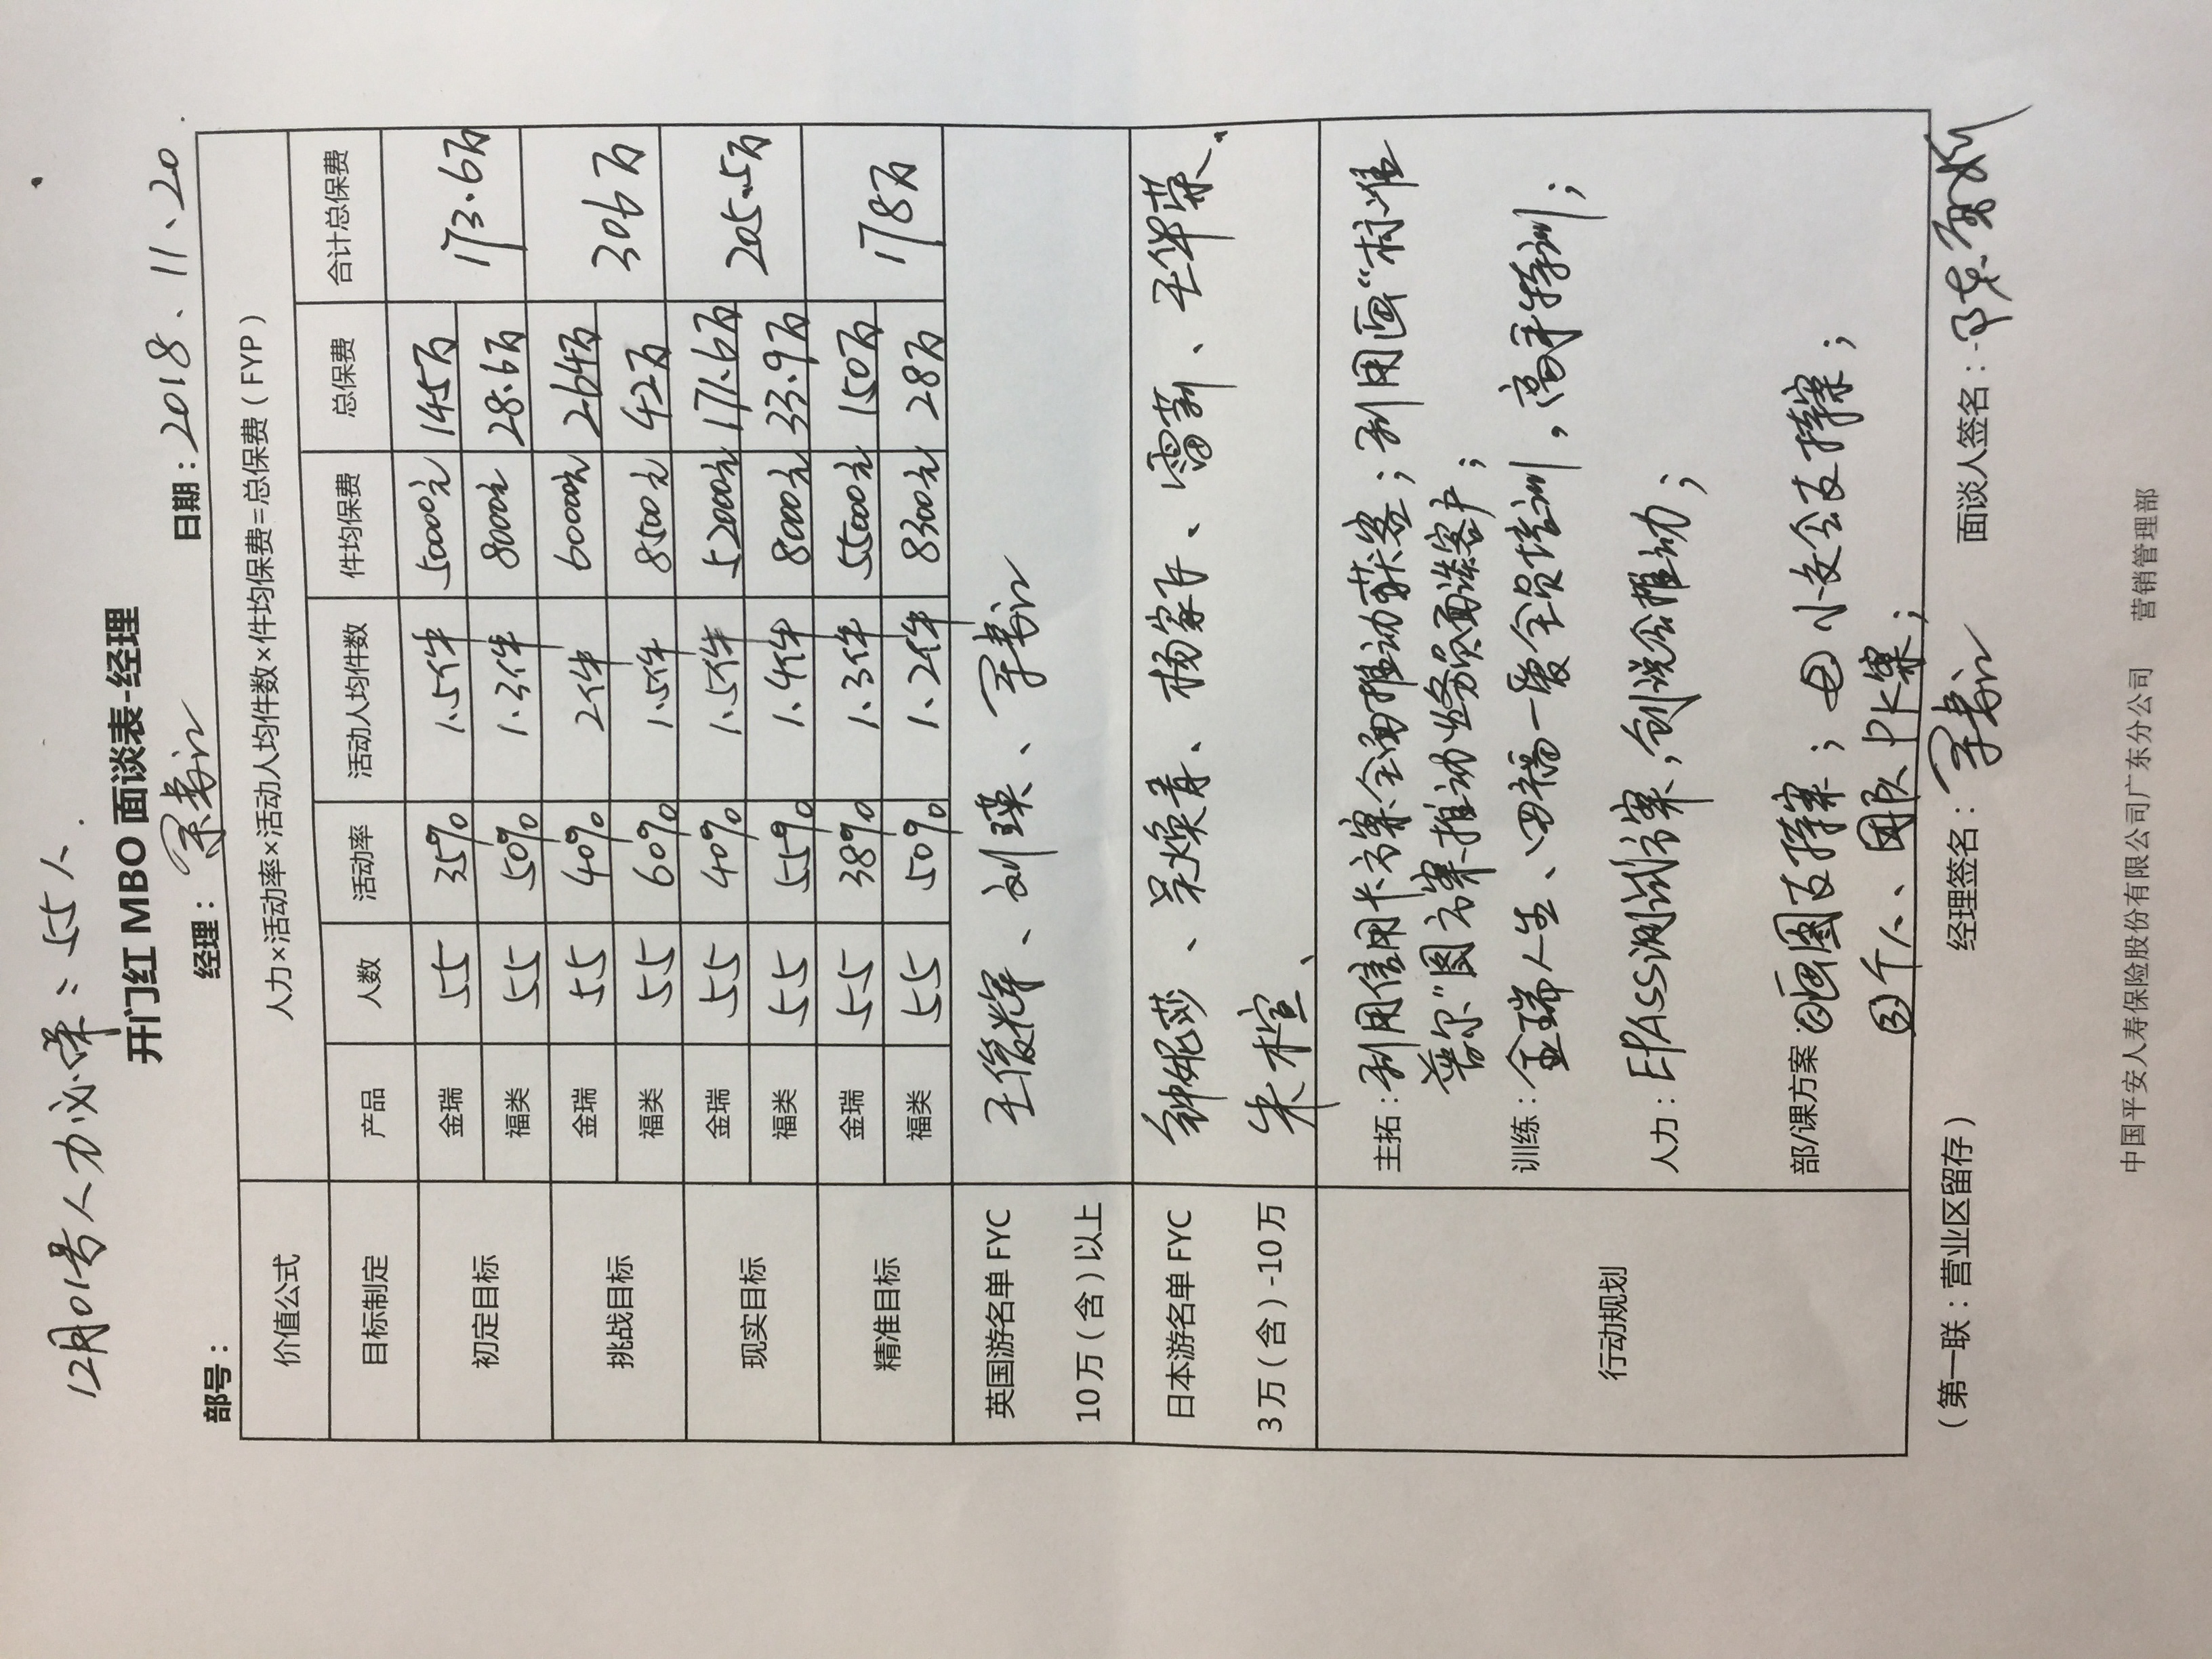 12月01号人力必保：55人.
开门红 MBO 面谈表-经理
部号： 经理： 日期：2018、11、20
价值公式 人力×活动率×活动人均件数×件均保费=总保费（FYP）
目标制定 产品 人数 活动率 活动人均件数 件均保费 总保费 合计总保费
初定目标 金瑞 55 35% 1.5件 50000元 145万 173.6万
福类 55 50% 1.3件 8000元 28.6万
挑战目标 金瑞 55 40% 2件 60000元 264万 306万
福类 55 60% 1.5件 8500元 42万
现实目标 金瑞 55 40% 1.5件 52000元 171.6万 205.5万
福类 55 55% 1.4件 8000元 33.9万
精准目标 金瑞 55 38% 1.3件 55000元 150万 178万
福类 55 50% 1.2件 8300元 28万
英国游名单 FYC
10万（含）以上
王俊辉、刘瑛、
日本游名单 FYC
3万（含）-10万
钟妮莎、吴焕青、杨家卞、雷莉、王华荣.
朱楦、
行动规划
主拓：利用信用卡方案全面推动获客；利用画“标准
普尔”图方案推动业务员面谈客户；
训练：金瑞人生、四福一爱全员培训，高手特训；
人力：EPASS测试方案，创说会推动；
部/课方案 ①画图支持案；②小交会支持案；
③个人、团队PK案；
（第一联：营业区留存） 经理签名： 面谈人签名：
中国平安人寿保险股份有限公司广东分公司 营销管理部